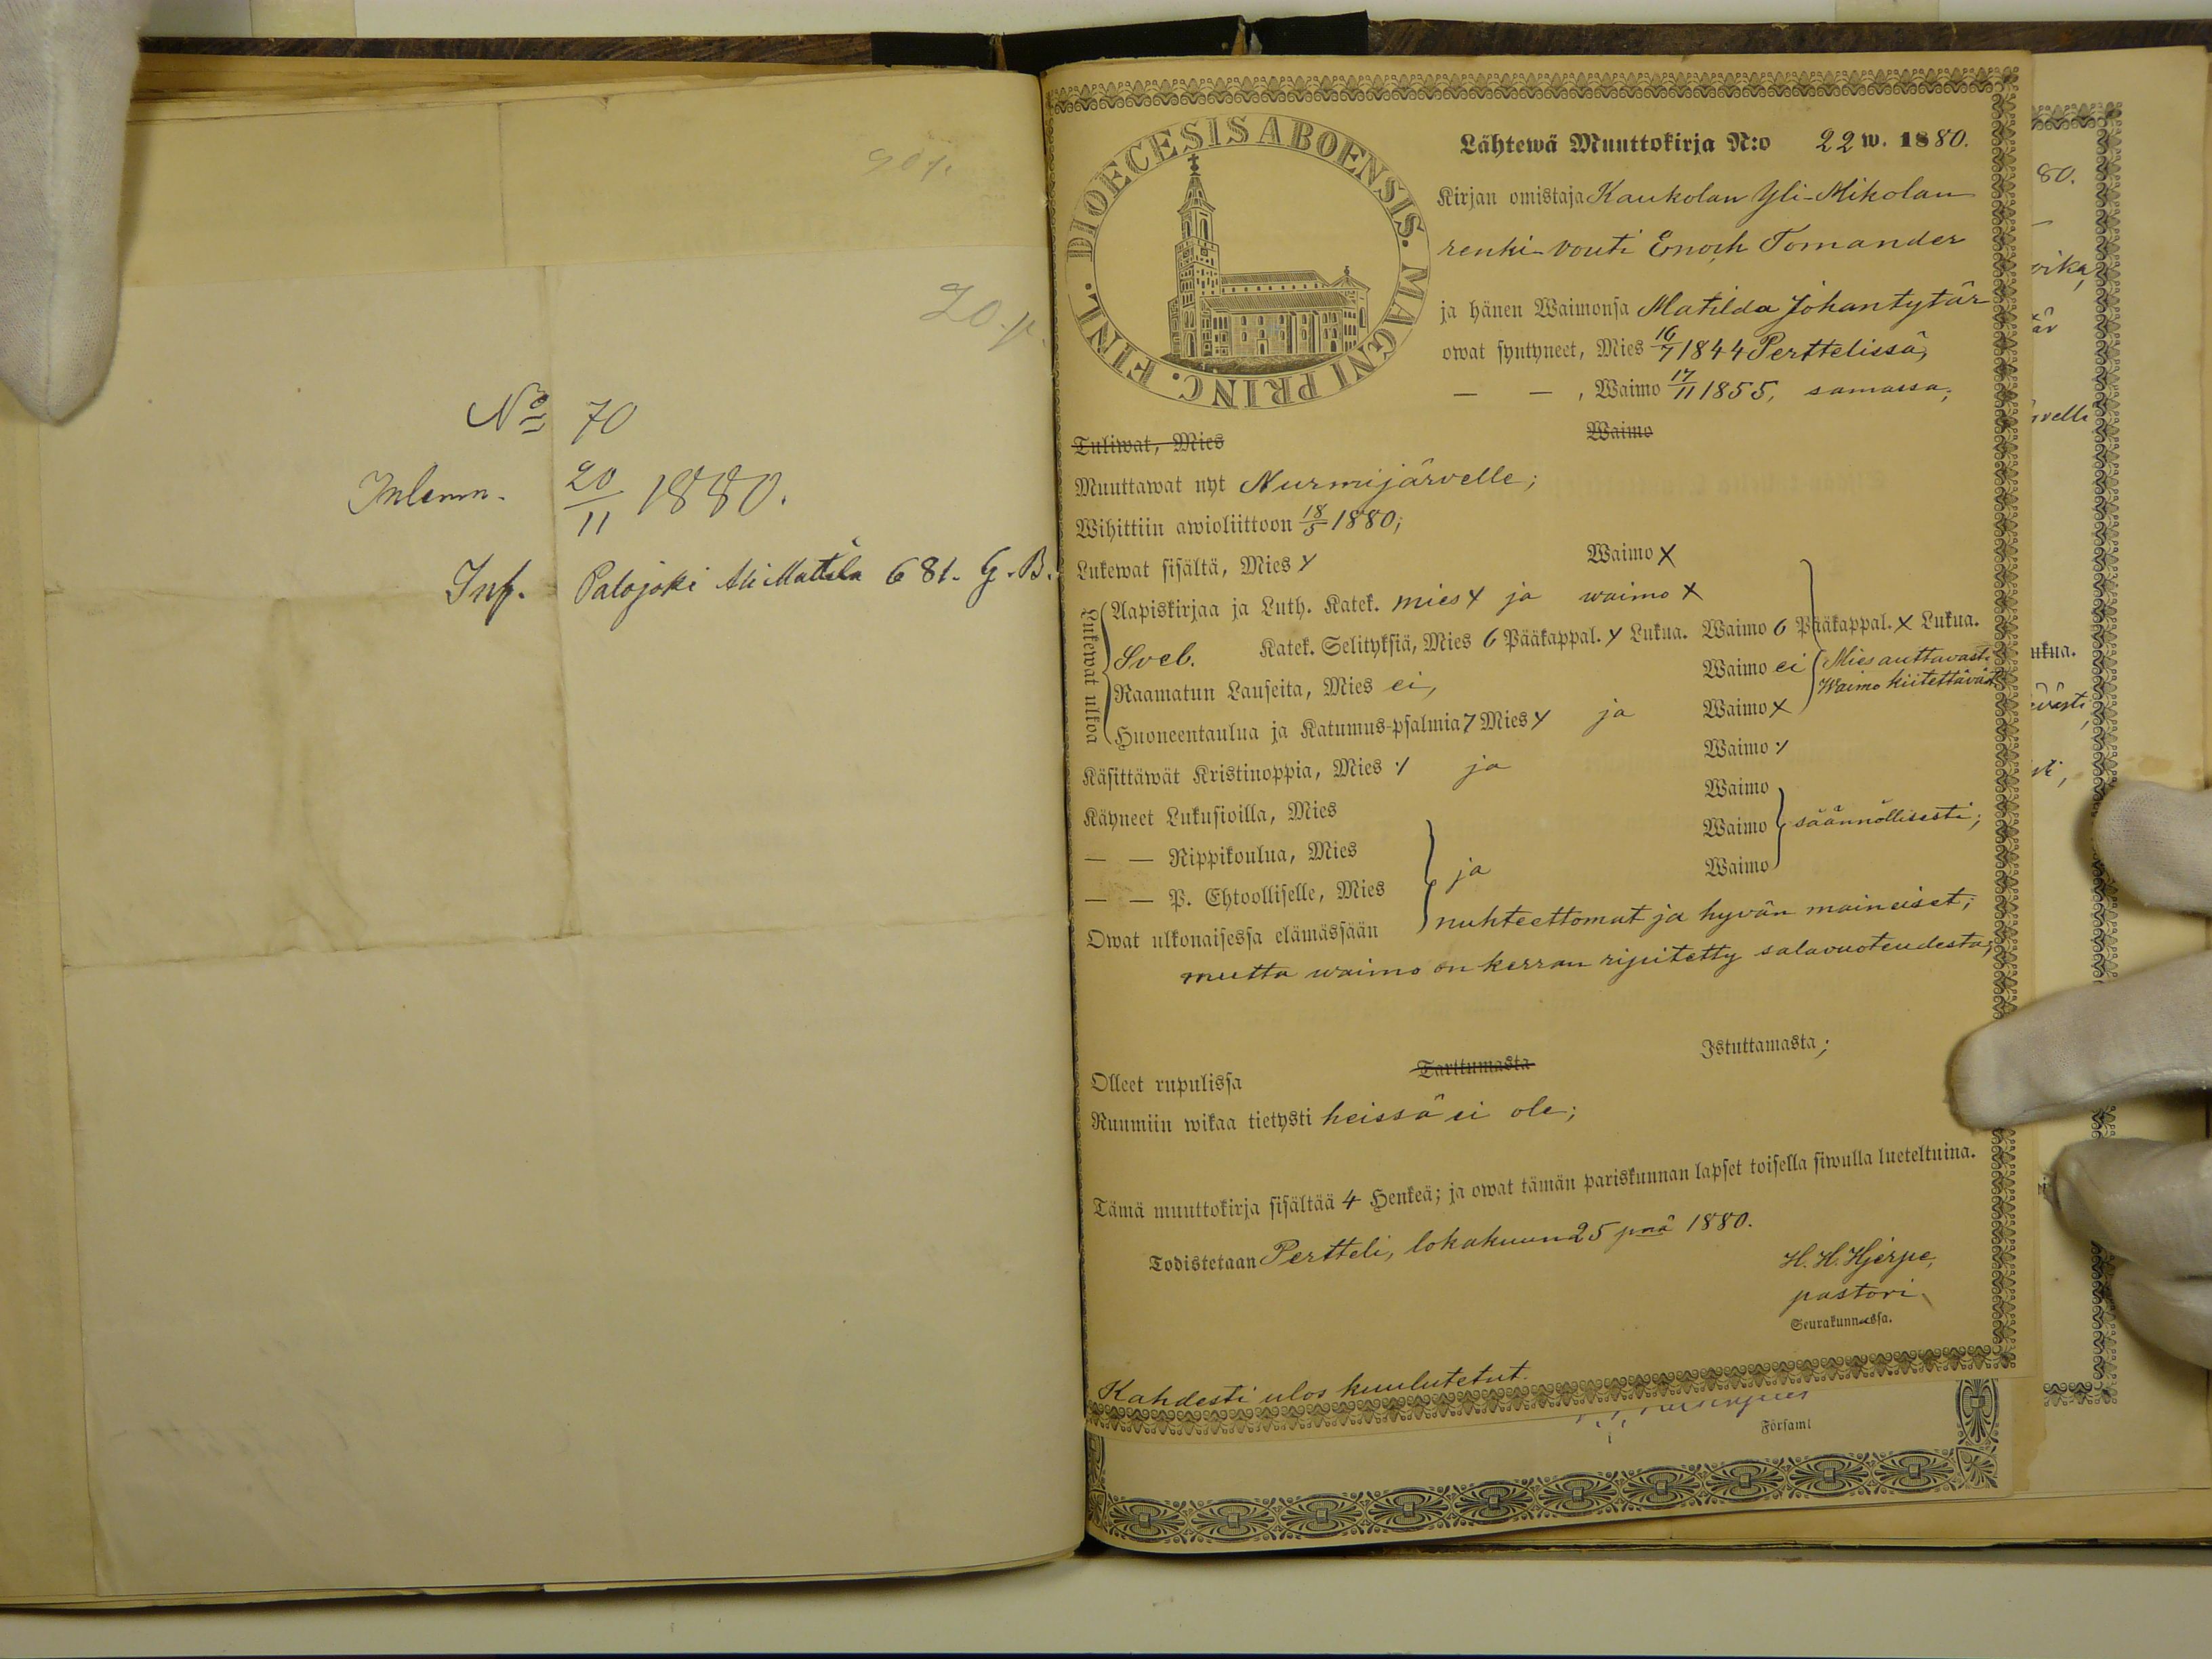 20 p.
Nº 70
Inlemn. 20/11 1880.
Inf. Palojoki Ali Mattila 681. G. B.
DIOECESIS ABOENSIS. MAGNI PRINC. FINL.
Lähtewä Muuttokirja N:o 22 w. 1880.
Kirjan omistaja Kaukolan Yli-Mikolan
renki-vouti Enoch Tomander
ja hänen Waimonsa Matilda Johantytär
owat syntyneet, Mies 16/7 1844 Perttelissä,
— — , Waimo 17/11 1855, samassa;
Tuliwat, Mies Waimo
Muuttawat nyt Nurmijärvelle;
Wihittiin awioliittoon 18/5 1880;
Lukewat sisältä, Mies x Waimo x
Lukewat ulkoa
Aapiskirjaa ja Luth. Katek. mies x ja waimo x
Sveb. Katek. Selityksiä, Mies 6 Pääkappal. x Lukua. Waimo 6 Pääkappal. x Lukua.
Raamatun Lauseita, Mies ei, Waimo ei
Mies auttavasti
Waimo kiitettäväst.
Huoneentaulua ja Katumus-psalmia 7 Mies x ja Waimo x
Käsittäwät Kristinoppia, Mies ·/ ja Waimo ·/
Käyneet Lukusioilla, Mies Waimo
— — Rippikoulua, Mies Waimo säännöllisesti;
— — P. Ehtoolliselle, Mies ja Waimo
Owat ulkonaisessa elämässään nuhteettomat ja hyvän maineiset;
mutta waimo on kerran ripitetty salavuoteudesta;
Olleet rupulissa Tarttumasta Istuttamasta;
Ruumiin wikaa tietysti heissä ei ole;
Tämä muuttokirja sisältää 4 Henkeä; ja owat tämän pariskunnan lapset toisella siwulla lueteltuina.
Todistetaan Pertteli, lokakuun 25 pnä 1880.
H. H. Hjerpe,
pastori
Seurakunnassa.
Kahdesti ulos kuulutetut.
i Församl
80.